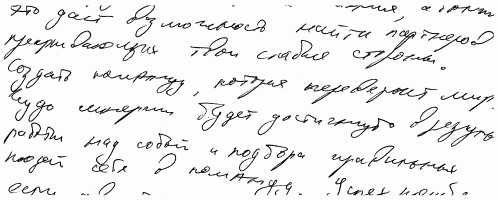 это даёт возможность найти партнёров
прикрывающих твои слабые стороны.
Создать команду, которая перевернёт мир.
Чудо синергии будет достигнуто в результате
работы над собой и подбора правильных
людей себе в команду. Успех
если